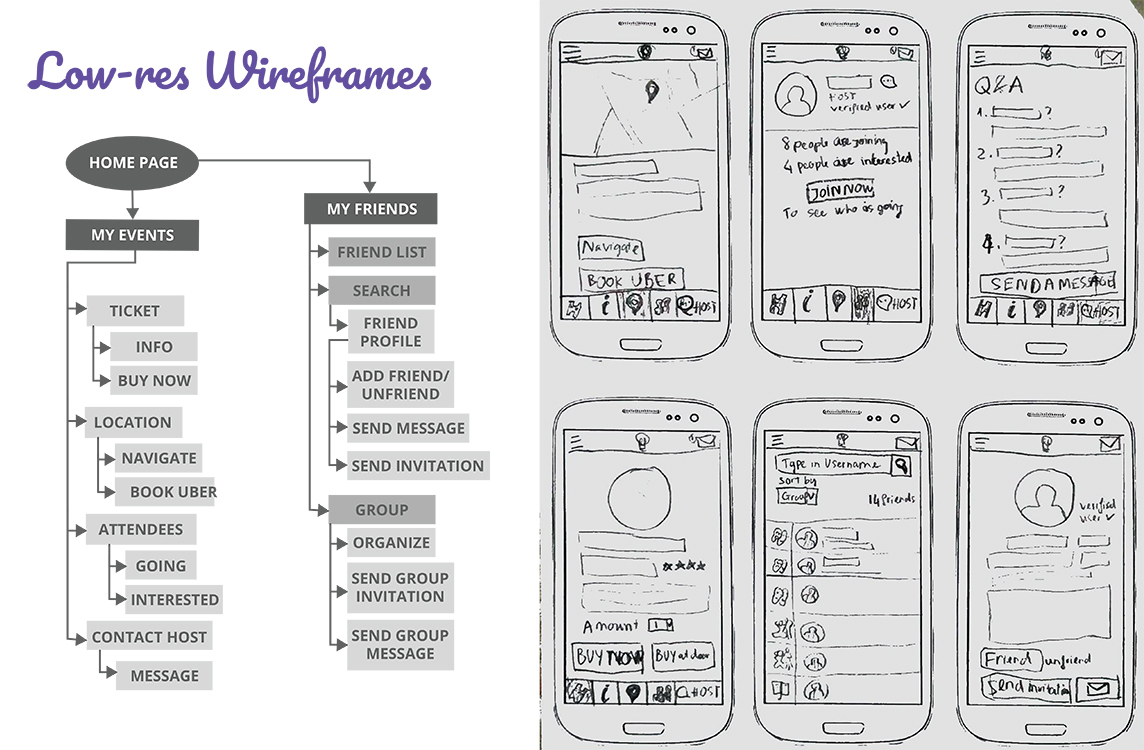 Low-res Wireframes
HOME PAGE
MY EVENTS
TICKET
INFO
BUY NOW
LOCATION
NAVIGATE
BOOK UBER
ATTENDEES
GOING
INTERESTED
CONTACT HOST
MESSAGE
MY FRIENDS
FRIEND LIST
SEARCH
FRIEND
PROFILE
ADD FRIEND/
UNFRIEND
SEND MESSAGE
SEND INVITATION
GROUP
ORGANIZE
SEND GROUP
INVITATION
SEND GROUP
MESSAGE
Navigate
BOOK UBER
i HOST
HOST
verified user ✓
8 people are joining
4 people are interested
JOIN NOW
To see who is going
i HOST
Q&A
1. ?
2. ?
3. ?
4. ?
SEND A MESSAGE
i HOST
Amount 1
BUY NOW BUY at door
i HOST
Type in Username
sort by
Group
14 friends
verified
user ✓
Friend unfriend
Send invitation